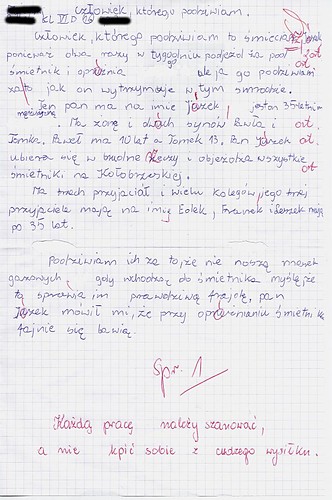 Człowiek, którego podziwiam.
KL VI D
Człowiek, którego podziwiam to śmieciarz
ponieważ dwa razy w tygodniu podjeżdża pod
śmietnik i opróżnia go ale ja go podziwiam
za to jak on wytrzymuje w tym smrodzie.
Ten pan ma na imię Jacek, jest on 35-letnim
mężczyzną. Ma żonę i dwóch synów Pawła i
Tomka. Paweł ma 10 lat a Tomek 13. Pan Jacek
ubiera się w brudne rzeczy i objeżdża wszystkie
śmietniki na Kołobrzeskiej.
Ma trzech przyjaciół i wielu kolegów, jego trzej
przyjaciele mają na imię Bolek, Franek i Leszek mają
po 35 lat.
Podziwiam ich za to, że nie noszą masek
gazowych, gdy wchodzą do śmietnika myślę, że
to sprawia im prawdziwą frajdę, pan
Jacek mówił mi, że przy opróżnianiu śmietnika
fajnie się bawią.
ort.
ort.
ort.
ort.
ort
Spr. 1
Każdą pracę należy szanować,
a nie kpić sobie z cudzego wysiłku.